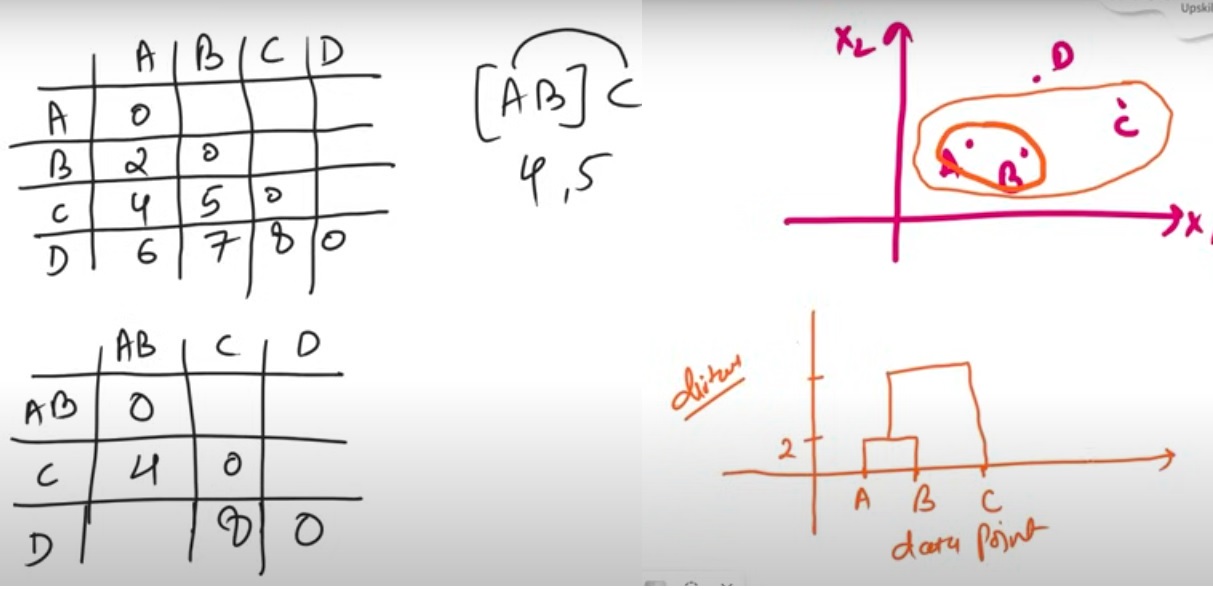 A B C D
A 0
B 2 0
C 4 5 0
D 6 7 8 0
[AB] C
4,5
AB C D
AB 0
C 4 0
D 8 0
Upskil
X2
D
C
A
B
X
2
A B C
data point